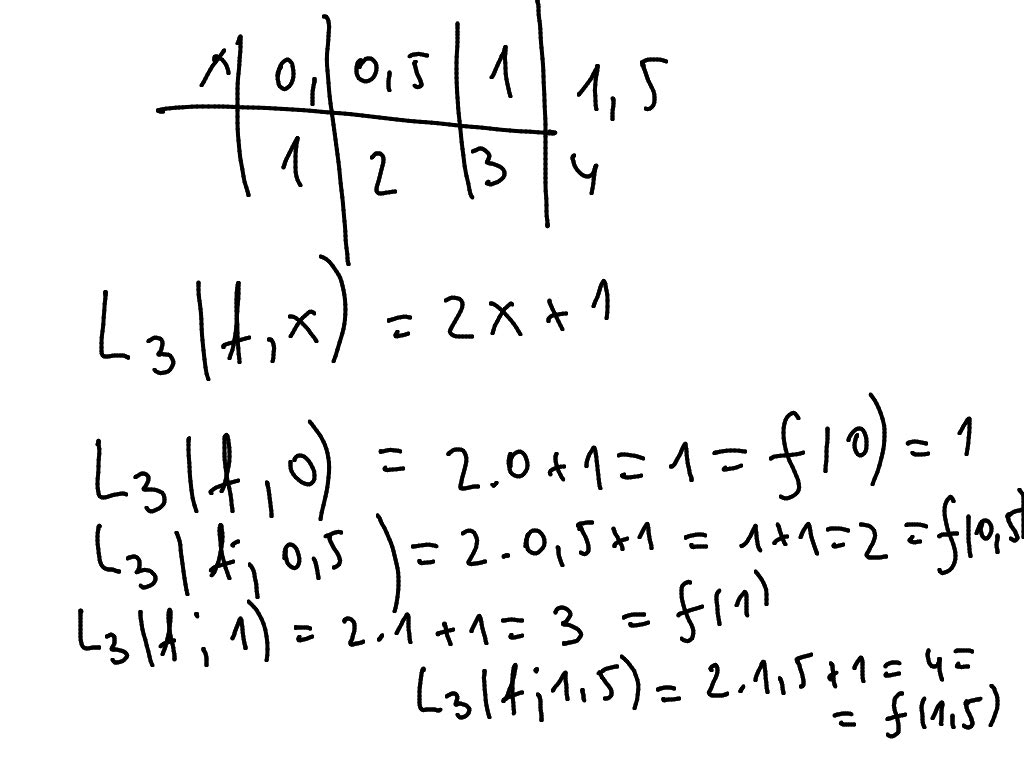 x | 0, | 0,5 | 1 | 1,5
1 | 2 | 3 | 4
L₃(f,x) = 2x+1
L₃(f,0) = 2.0+1=1=f(0)=1
L₃(f;0,5)=2.0,5+1=1+1=2=f(0,5)
L₃(f;1)=2.1+1=3=f(1)
L₃(f;1,5)=2.1,5+1=4=
=f(1,5)